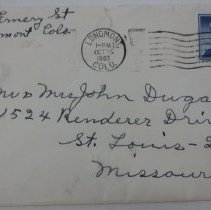 Emery St
mont Colo.
LONGMONT
1-PM
OCT
COLO.
Mrs John Duga
1524 Renderer Driv
St. Louis-
Missour